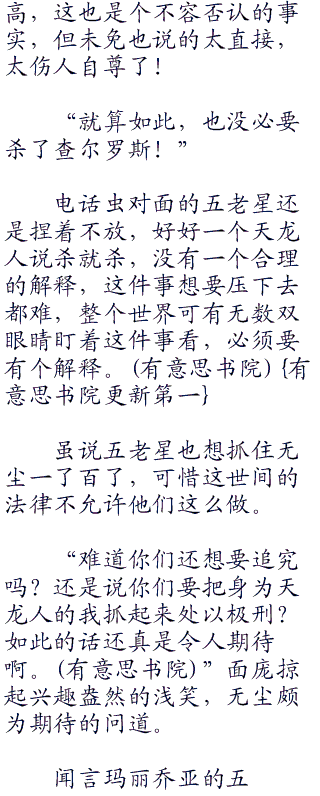 高，这也是个不容否认的事
实，但未免也说的太直接，
太伤人自尊了！
“就算如此，也没必要
杀了查尔罗斯！”
电话虫对面的五老星还
是捏着不放，好好一个天龙
人说杀就杀，没有一个合理
的解释，这件事想要压下去
都难，整个世界可有无数双
眼睛盯着这件事看，必须要
有个解释。(有意思书院) {有
意思书院更新第一}
虽说五老星也想抓住无
尘一了百了，可惜这世间的
法律不允许他们这么做。
“难道你们还想要追究
吗？还是说你们要把身为天
龙人的我抓起来处以极刑？
如此的话还真是令人期待
啊。(有意思书院)”面庞掠
起兴趣盎然的浅笑，无尘颇
为期待的问道。
闻言玛丽乔亚的五